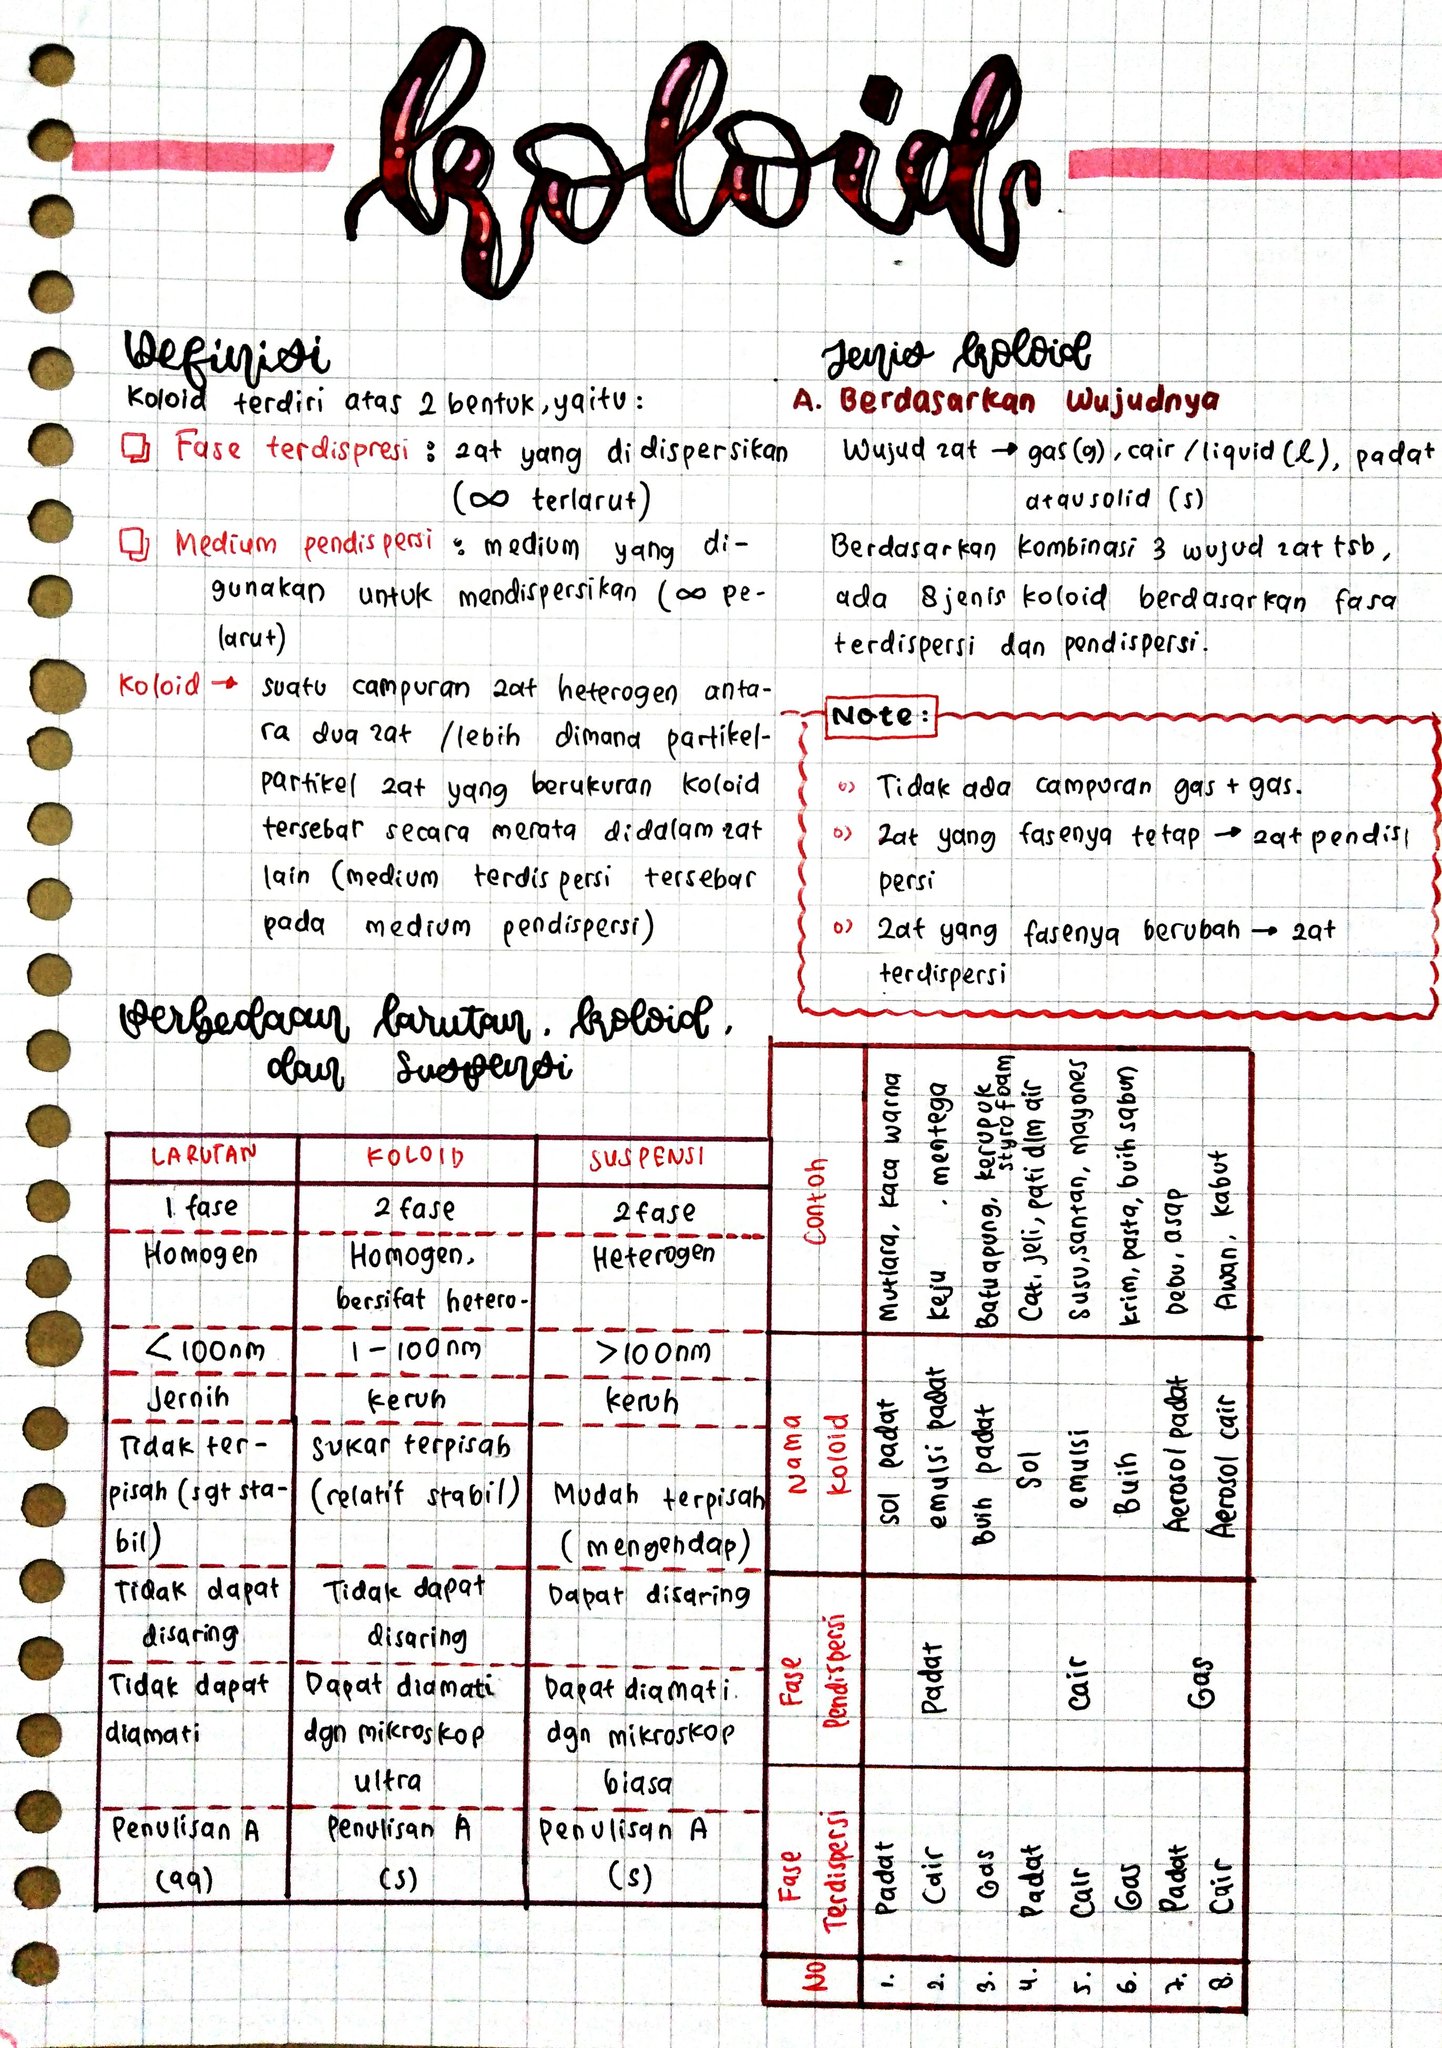 koloid
Definisi
Koloid terdiri atas 2 bentuk, yaitu:
Fase terdispresi : zat yang didispersikan
(∞ terlarut)
Medium pendispersi : medium yang di-
gunakan untuk mendispersikan (∞ pe-
larut)
Koloid → suatu campuran zat heterogen anta-
ra dua zat /lebih dimana partikel-
partikel zat yang berukuran koloid
tersebar secara merata didalam zat
lain (medium terdispersi tersebar
pada medium pendispersi)
Jenis koloid
A. Berdasarkan Wujudnya
Wujud zat → gas(g), cair/liquid(l), padat
atau solid (s)
Berdasarkan kombinasi 3 wujud zat tsb,
ada 8 jenis koloid berdasarkan fasa
terdispersi dan pendispersi.
Note:
Tidak ada campuran gas + gas.
Zat yang fasenya tetap → zat pendis
persi
Zat yang fasenya berubah → zat
terdispersi
Perbedaan larutan, koloid,
dan Suspensi
LARUTAN KOLOID SUSPENSI
1 fase 2 fase 2 fase
Homogen Homogen, Heterogen
bersifat hetero-
<100nm 1-100nm >100nm
Jernih keruh keruh
Tidak ter- Sukar terpisah
pisah (sgt sta- (relatif stabil) Mudah terpisah
bil) (mengendap)
Tidak dapat Tidak dapat Dapat disaring
disaring disaring
Tidak dapat Dapat diamati Dapat diamati.
diamati dgn mikroskop dgn mikroskop
ultra biasa
Penulisan A Penulisan A Penulisan A
(aq) (s) (s)
No Fase Terdispersi Fase Pendispersi Nama Koloid Contoh
1. Padat sol padat Mutiara, kaca warna
2. Cair Padat emulsi padat keju, mentega
3. Gas Buih padat Batu apung, kerupuk
styrofoam
4. Padat Sol Cat, jeli, pati dlm air
5. Cair Cair emulsi Susu, santan, mayones
6. Gas Buih krim, pasta, buih sabun
7. Padat Gas Aerosol padat Debu, asap
8. Cair Aerosol cair Awan, kabut